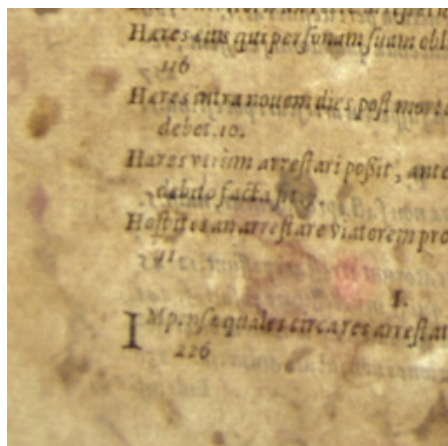 Hæres eius qui personam suam obl
116
Hæres intra nouem dies post mort
debet. 10.
Hæres vtrùm arrestari poßit, ante
debito facta sit.
Hospites an arrestare viatorem pro
I.
IMpensæ quales circa res arrestat
226